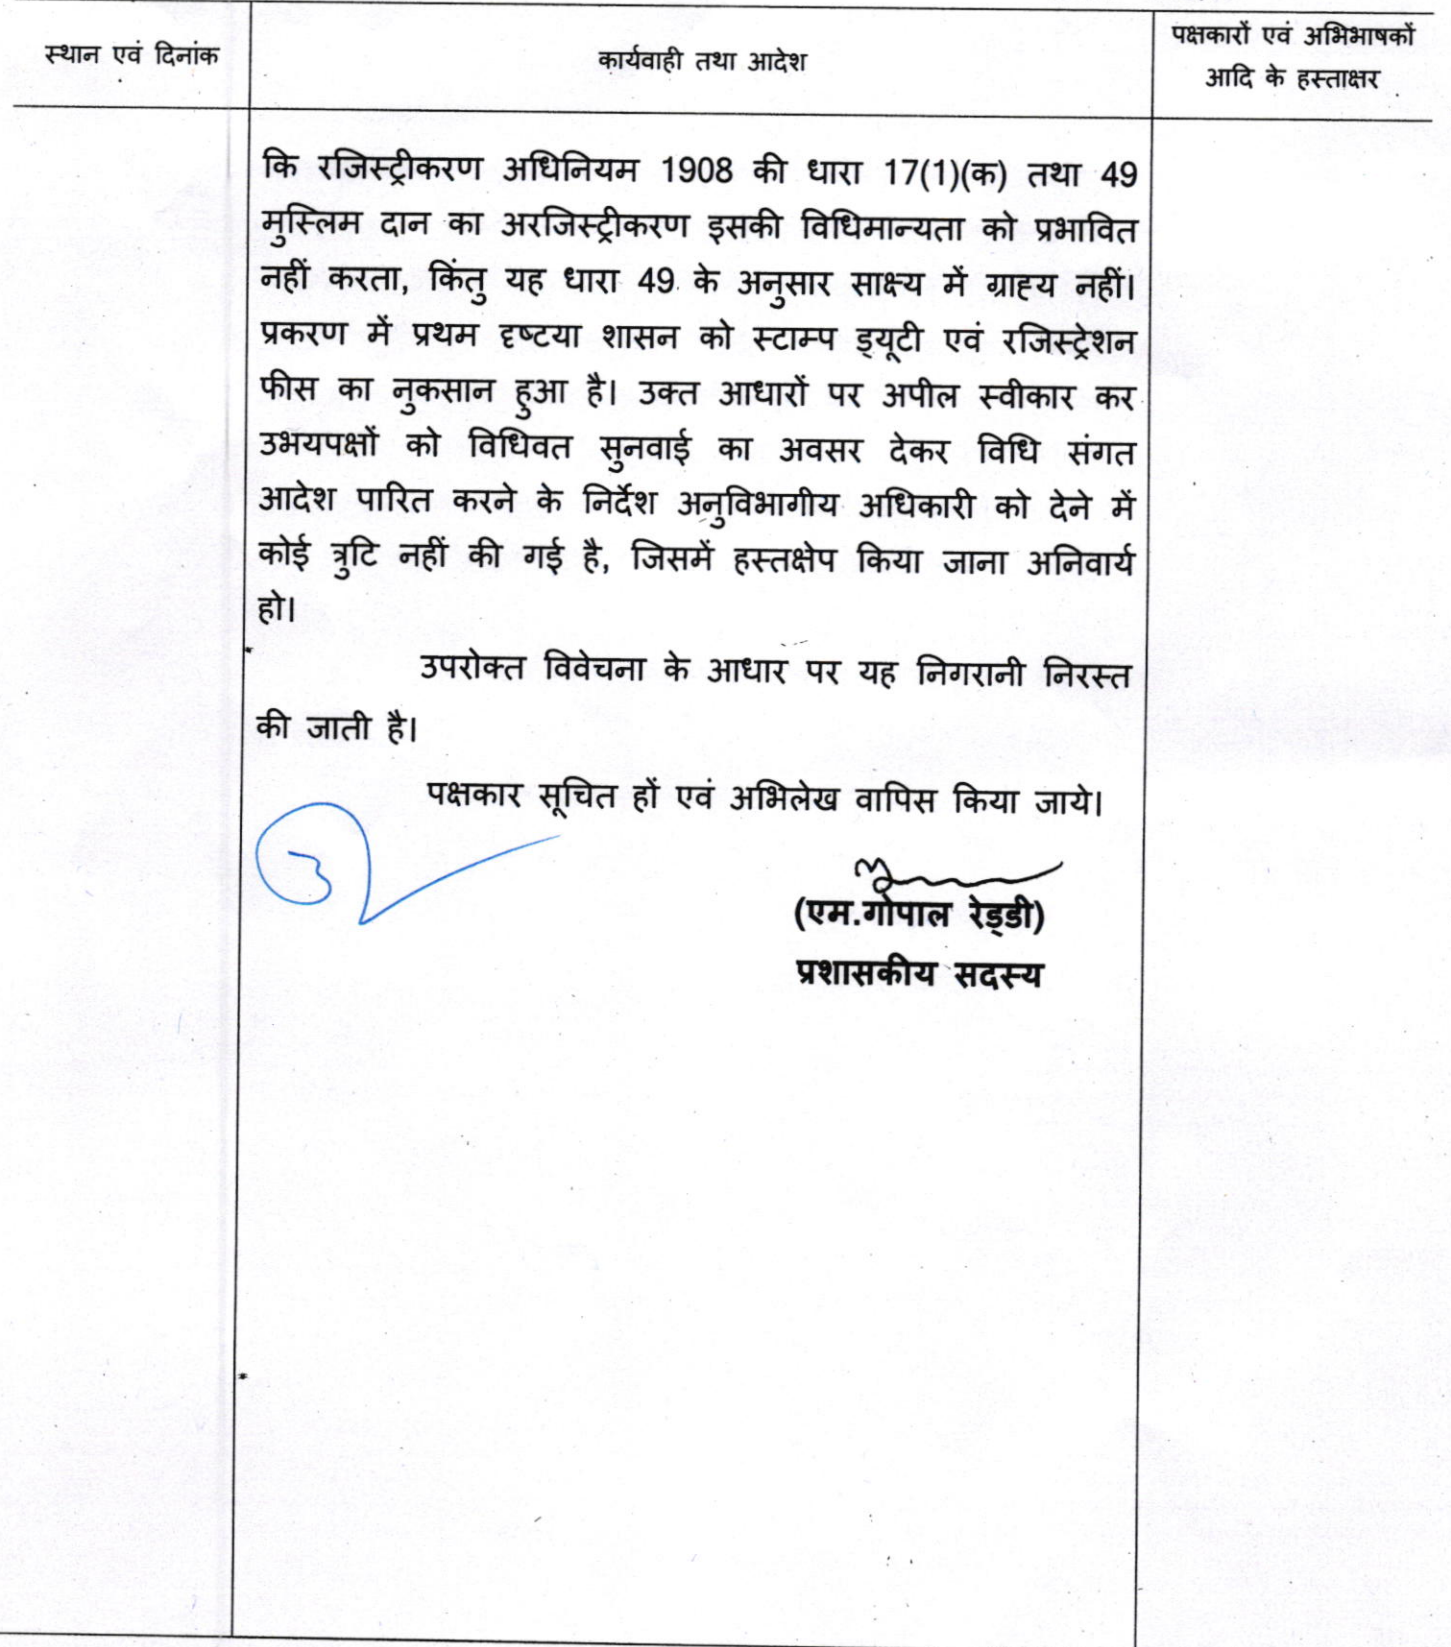 स्थान एवं दिनांक
कार्यवाही तथा आदेश
पक्षकारों एवं अभिभाषकों
आदि के हस्ताक्षर
कि रजिस्ट्रीकरण अधिनियम 1908 की धारा 17(1)(क) तथा 49
मुस्लिम दान का अरजिस्ट्रीकरण इसकी विधिमान्यता को प्रभावित
नहीं करता, किंतु यह धारा 49 के अनुसार साक्ष्य में ग्राह्य नहीं।
प्रकरण में प्रथम दृष्टया शासन को स्टाम्प ड्यूटी एवं रजिस्ट्रेशन
फीस का नुकसान हुआ है। उक्त आधारों पर अपील स्वीकार कर
उभयपक्षों को विधिवत सुनवाई का अवसर देकर विधि संगत
आदेश पारित करने के निर्देश अनुविभागीय अधिकारी को देने में
कोई त्रुटि नहीं की गई है, जिसमें हस्तक्षेप किया जाना अनिवार्य
हो।
उपरोक्त विवेचना के आधार पर यह निगरानी निरस्त
की जाती है।
पक्षकार सूचित हों एवं अभिलेख वापिस किया जाये।
(एम.गोपाल रेड्डी)
प्रशासकीय सदस्य